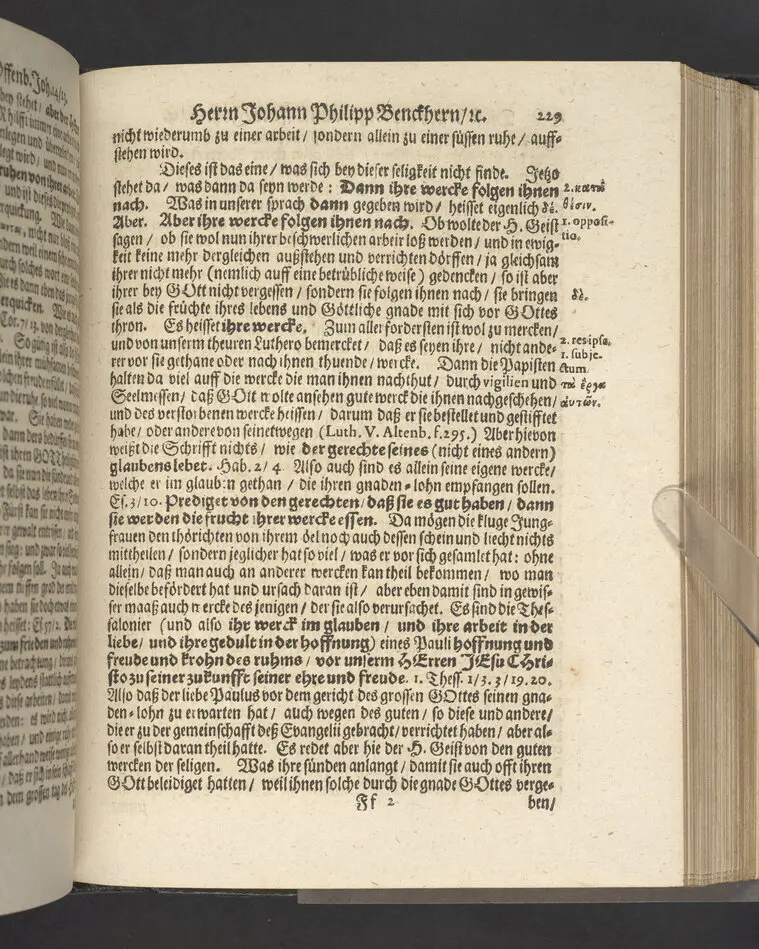 Herrn Johann Philipp Benckhern/ ꝛc. 229
nicht wiederumb zu einer arbeit / sondern allein zu einer süssen ruhe / auff-
stehen wird.
Dieses ist das eine / was sich bey dieser seligkeit nicht finde. Jetzo
stehet da / was dann da seyn werde : Dann ihre wercke folgen ihnen
2. κατὰ
nach. Was in unserer sprach dann gegeben wird / heisset eigenlich δέ.
θέσιν.
Aber. Aber ihre wercke folgen ihnen nach. Ob wolte der H. Geist
1. opposi-
sagen / ob sie wol nun ihrer beschwerlichen arbeit loß werden / und in ewig-
tio.
keit keine mehr dergleichen außstehen und verrichten dörffen / ja gleichsam
ihrer nicht mehr (nemlich auff eine betrübliche weise) gedencken / so ist aber
ihrer bey GOtt nicht vergessen / sondern sie folgen ihnen nach / sie bringen
δέ.
sie als die früchte ihres lebens und Göttliche gnade mit sich vor GOttes
thron. Es heisset ihre wercke. Zum aller fordersten ist wol zu mercken /
und von unserm theuren Luthero bemercket / daß es seyen ihre / nicht ande-
2. res ipsa.
rer vor sie gethane oder nach ihnen thuende / wercke. Dann die Papisten
1. subje-
ctum
halten da viel auff die wercke die man ihnen nachthut / durch vigilien und
τὰ ἔργα
Seelmessen / daß GOtt wolte ansehen gute werck die ihnen nachgeschehen /
αὐτῶν.
und des verstorbenen wercke heissen / darum daß er sie bestellet und gestifftet
habe / oder andere von seinetwegen (Luth. V. Altenb. f. 295.) Aber hievon
weißt die Schrifft nichts / wie der gerechte seines (nicht eines andern)
glaubens lebet. Hab. 2 / 4 Also auch sind es allein seine eigene wercke /
welche er im glauben gethan / die ihren gnaden-lohn empfangen sollen.
Es. 3 / 10. Prediget von den gerechten / daß sie es gut haben / dann
sie werden die frucht ihrer wercke essen. Da mögen die kluge Jung-
frauen den thörichten von ihrem öel noch auch dessen schein und liecht nichts
mittheilen / sondern jeglicher hat so viel / was er vor sich gesamlet hat : ohne
allein / daß man auch an anderer wercken kan theil bekommen / wo man
dieselbe befördert hat und ursach daran ist / aber eben damit sind in gewis-
ser maaß auch wercke des jenigen / der sie also verursachet. Es sind die Thes-
salonier (und also ihr werck im glauben / und ihre arbeit in der
liebe / und ihre gedult in der hoffnung) eines Pauli hoffnung und
freude und krohn des ruhms / vor unserm HErren JEsu CHri-
sto zu seiner zukunfft seiner ehre und freude. 1. Thess. 1 / 3. 3 / 19. 20.
Also daß der liebe Paulus vor dem gericht des grossen GOttes seinen gna-
den-lohn zu erwarten hat / auch wegen des guten / so diese und andere /
die er zu der gemeinschafft deß Evangelii gebracht / verrichtet haben / aber al-
so er selbst daran theil hatte. Es redet aber hie der H. Geist von den guten
wercken der seligen. Was ihre sünden anlangt / damit sie auch offt ihren
GOtt beleidiget hatten / weil ihnen solche durch die gnade GOttes verge-
Ff 2 ben /